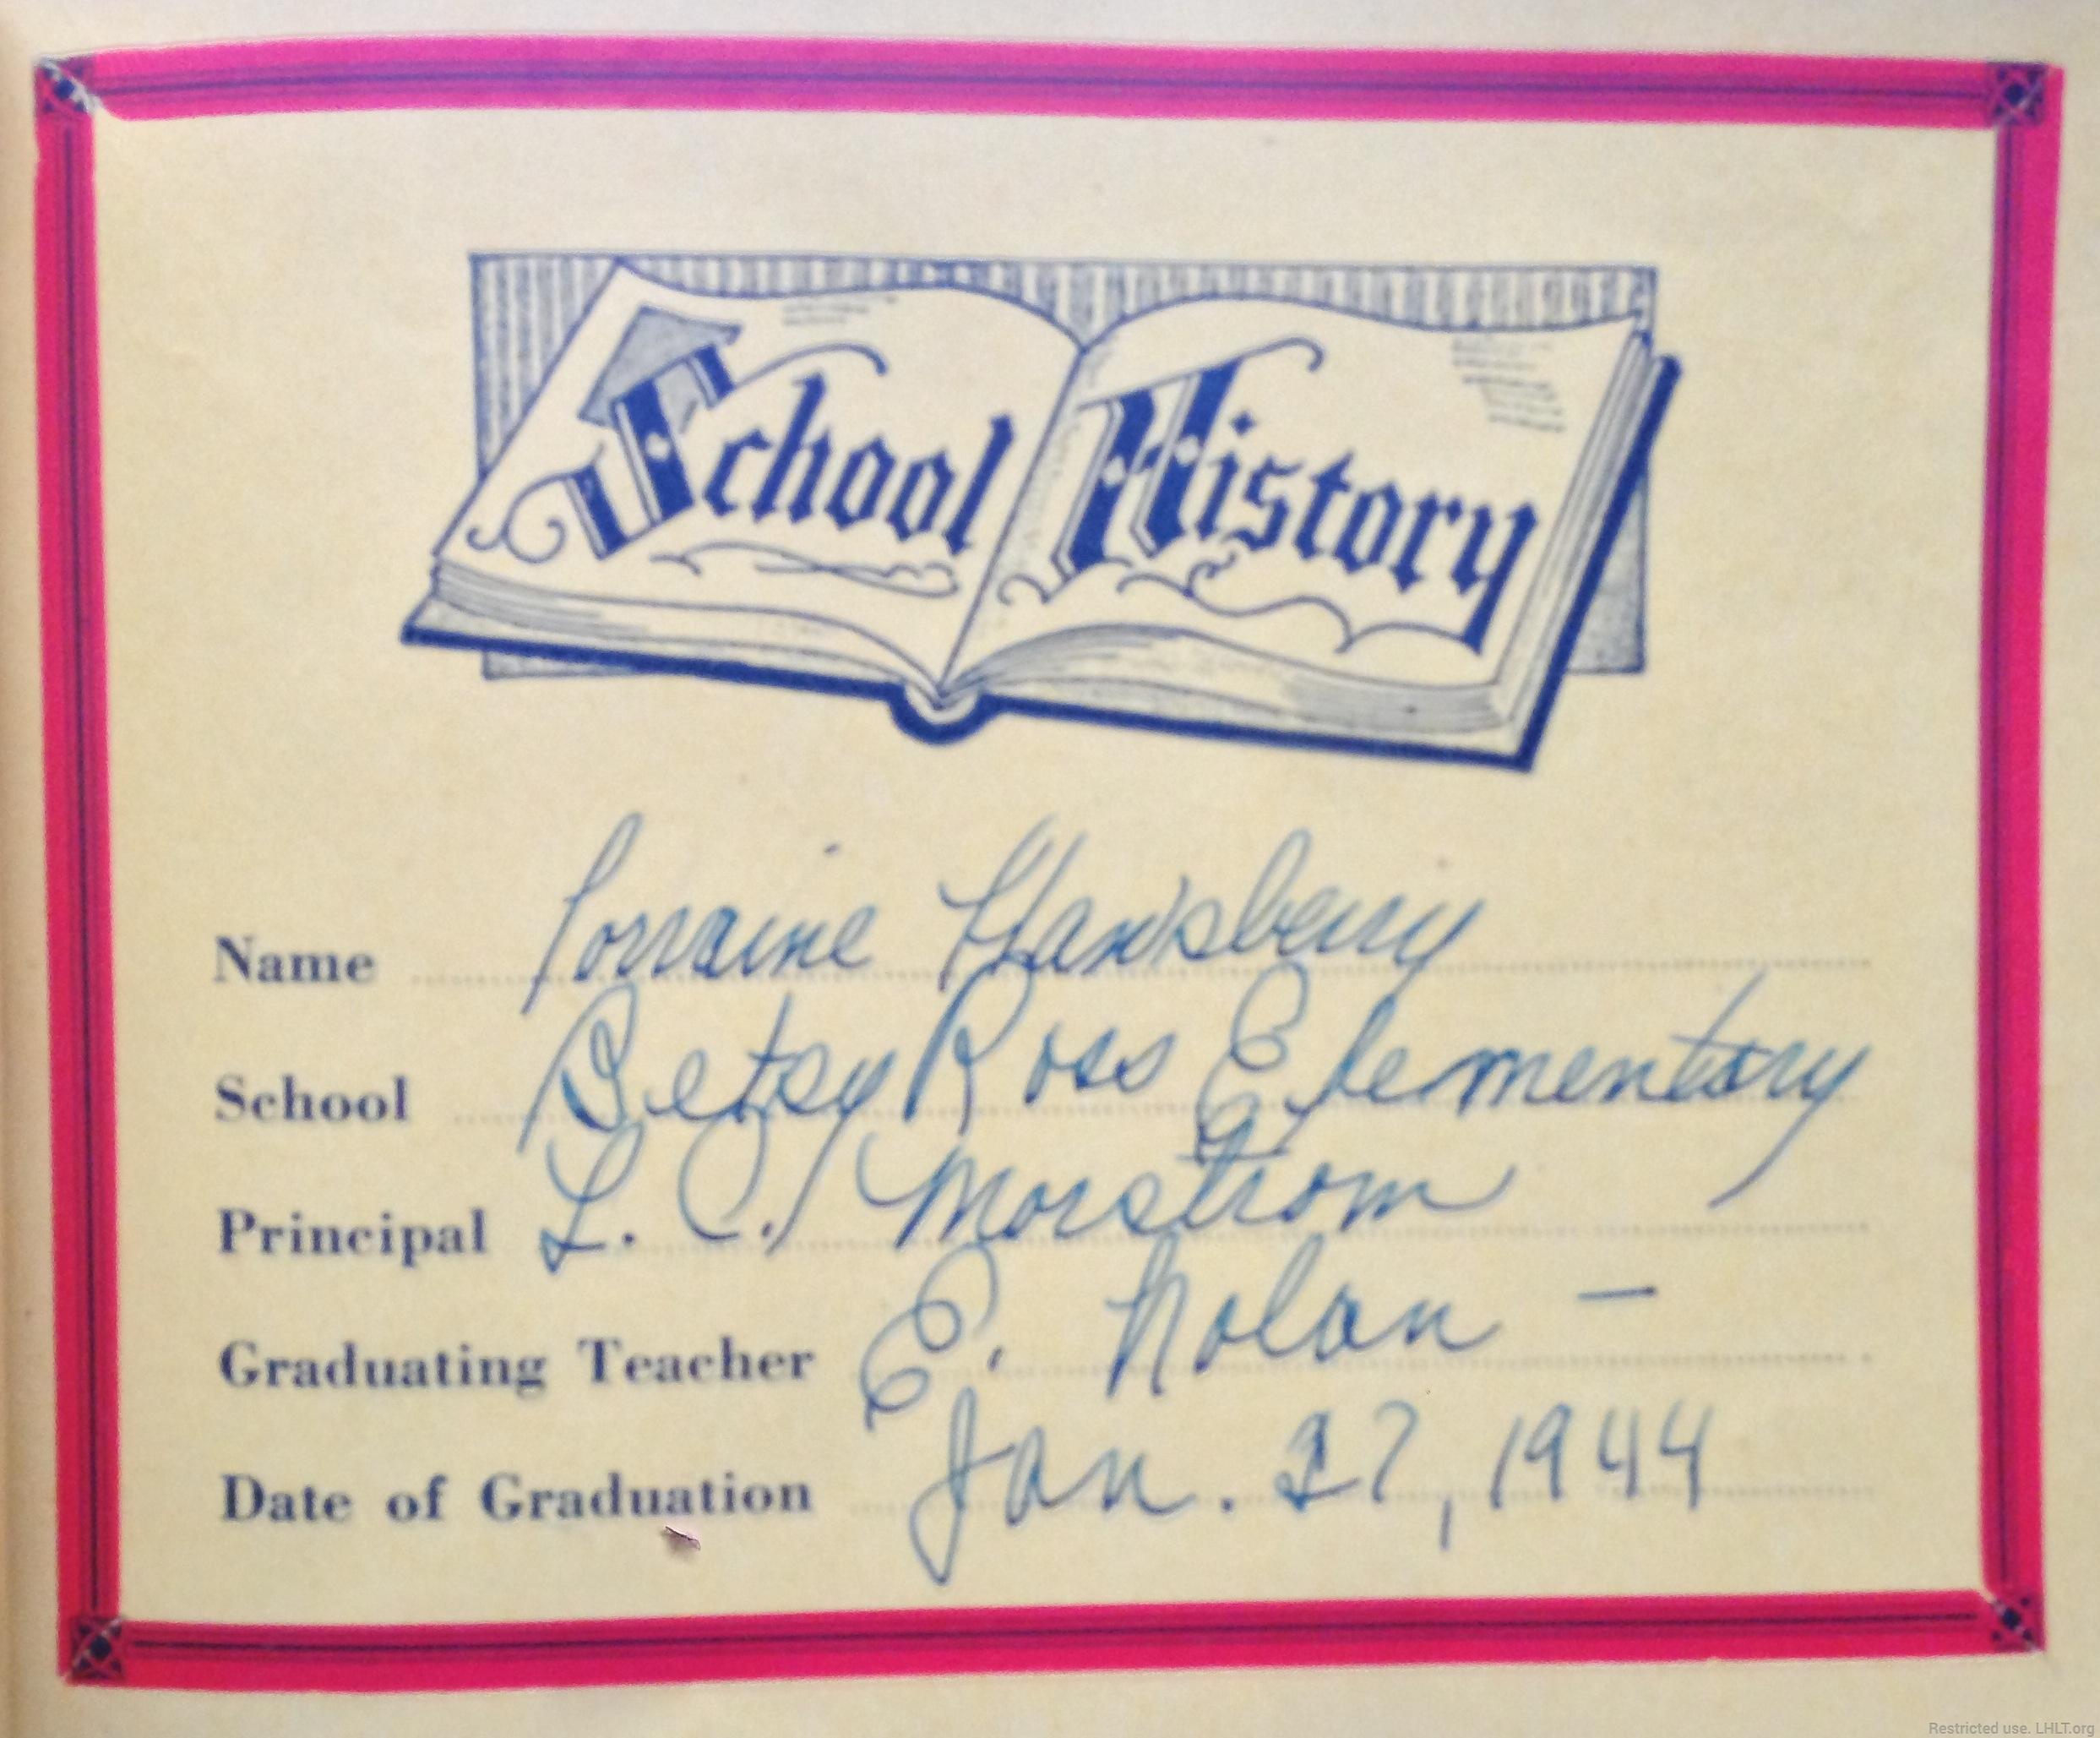 School History
Name Lorraine Hansberry
School Betsy Ross Elementary
Principal L. C. Morstrom
Graduating Teacher E. Nolan —
Date of Graduation Jan. 27, 1944
Restricted use. LHLT.org